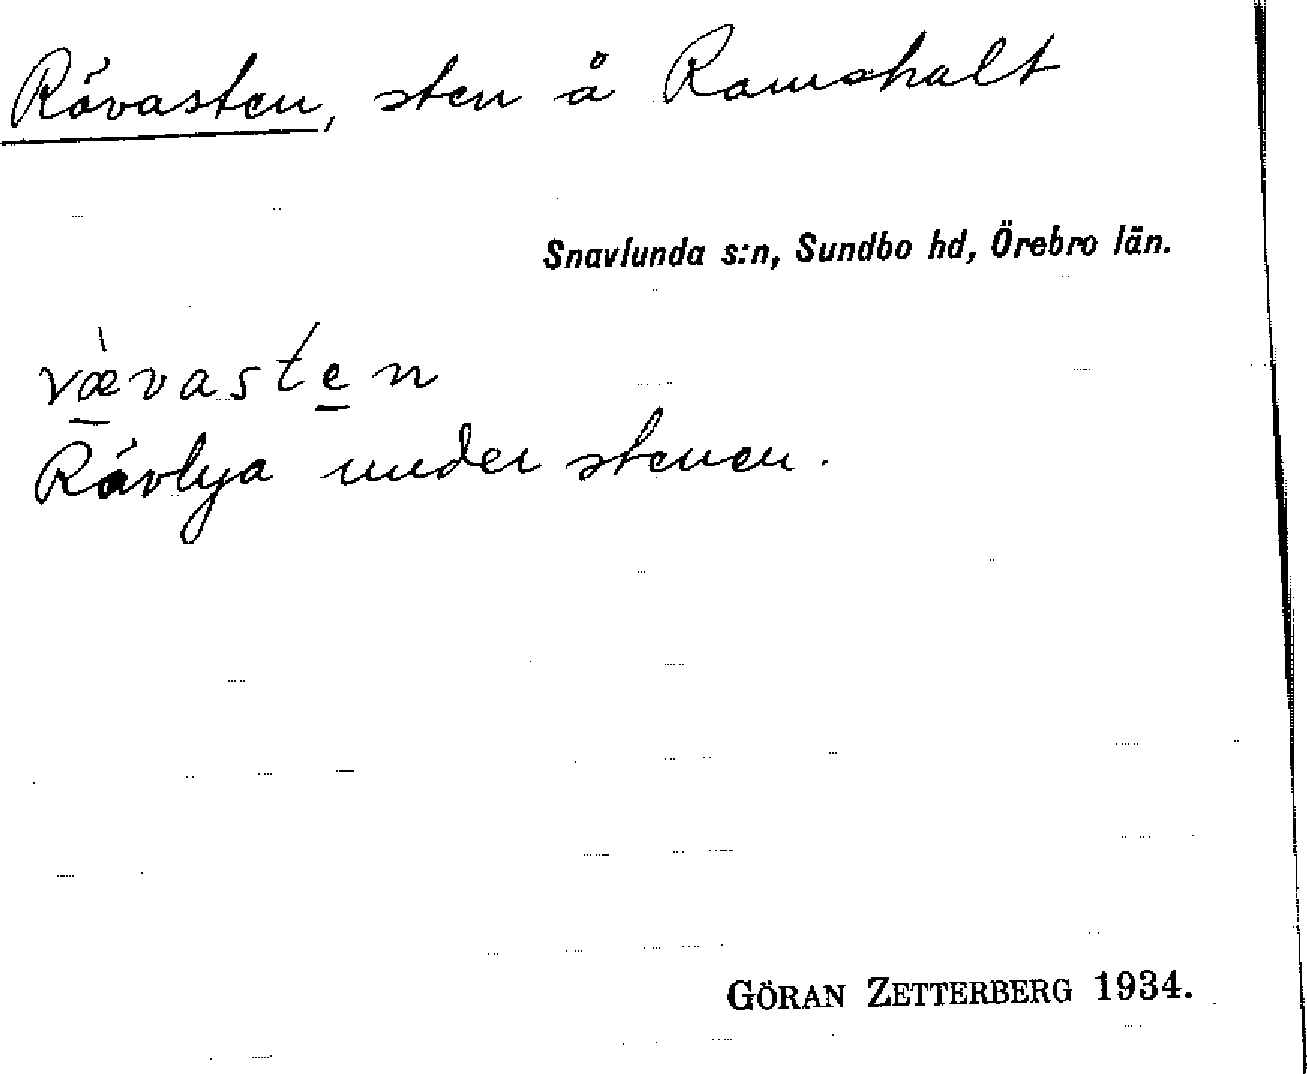 Rävasten, sten å Ramshult
Snavlunda s:n, Sundbo hd, Örebro län.
rævasten
Rävlya under stenen.
GÖRAN ZETTERBERG 1934.